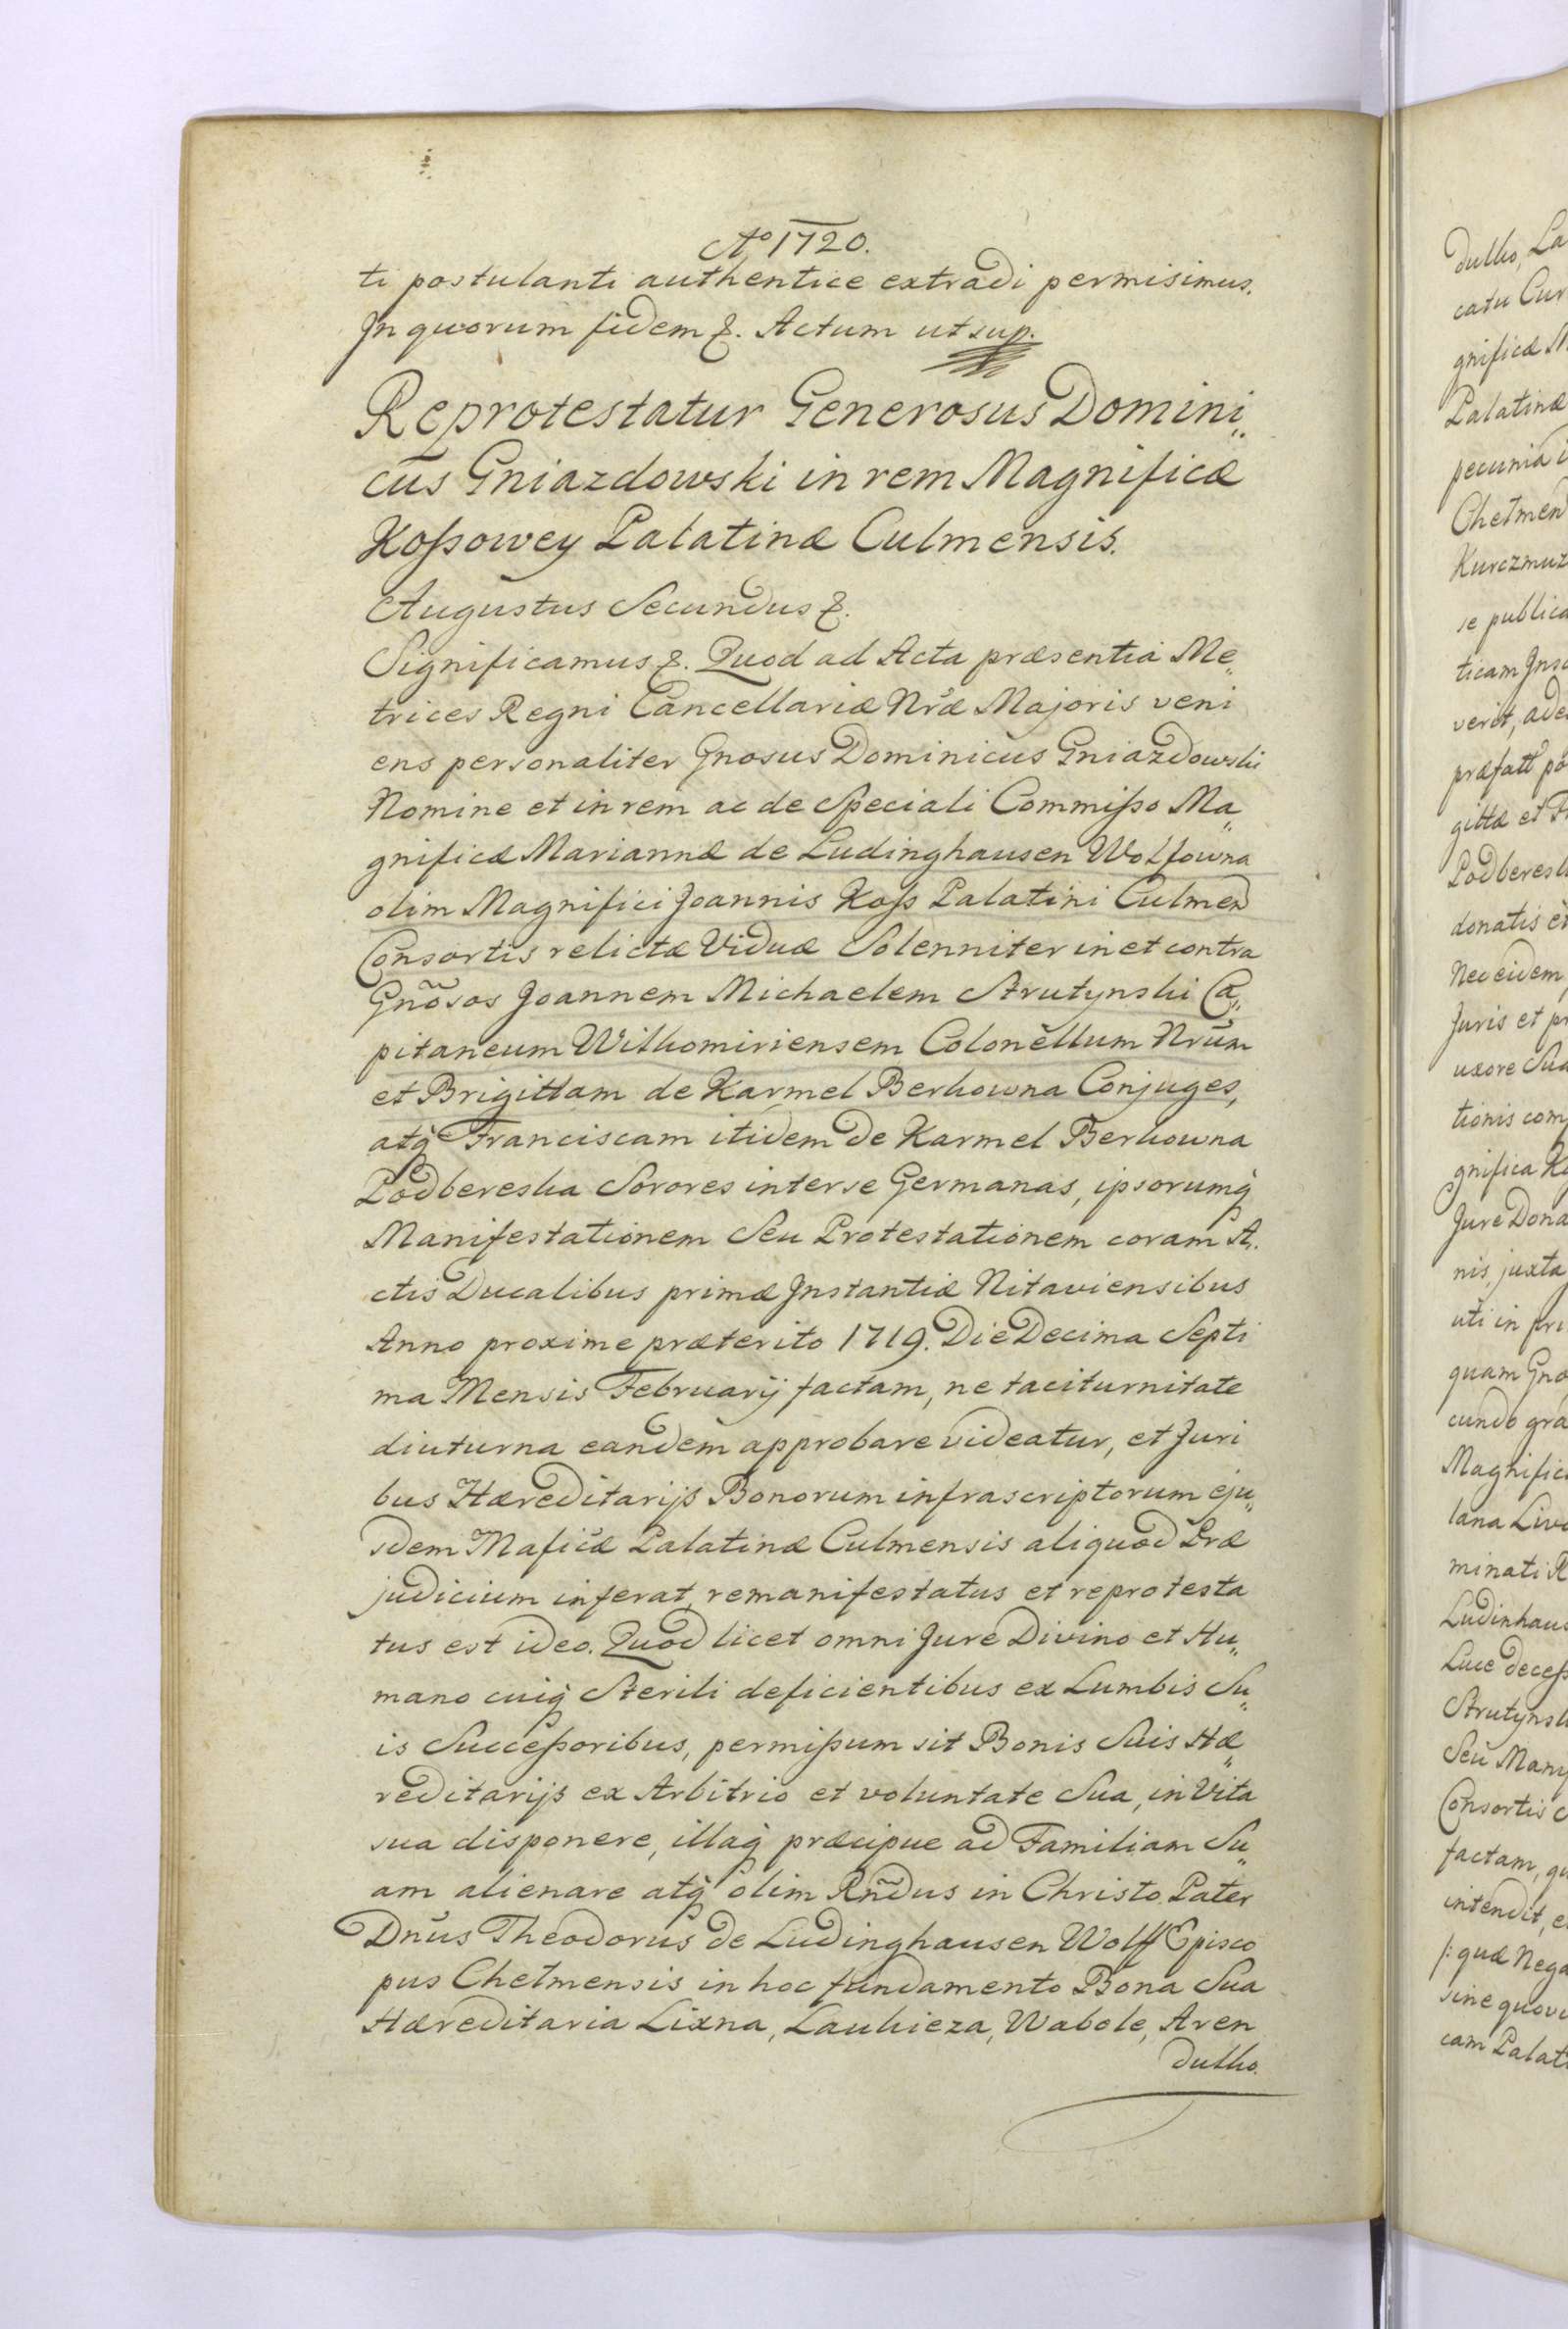 Aº 1720.
ti postulanti authentice extradi permisimus.
In quorum fidem &. Actum ut sup.
Reprotestatur Generosus Domini„
cus Gniazdowski in rem Magnificæ
Koſsowey Palatinæ Culmensis.
Augustus Secundus &.
Significamus &. Quod ad Acta præsentia Me„
trices Regni Cancellariæ Nræ Majoris veni
ens personaliter Gnosus Dominicus Gniazdowski
Nomine et in rem ac de Speciali Commiſso Ma„
gnificæ Mariannæ de Ludinghausen Wolfowna
olim Magnifici Joannis Koſs Palatini Culmen
Consortis relictæ Viduæ Solenniter in et contra
Gnõsos Joannem Michaelem Strutynski Ca„
pitaneum Wilkomiriensem Colonellum Nrum
et Brigittam de Karmel Berkowna Conjuges,
atq̀ Franciscam itidem de Karmel Berkowna
Podbereska Sorores inter se Germanas, ipsorumq̀
Manifestationem Seu Protestationem coram A.
ctis Ducalibus primæ Instantiæ Nitaviensibus
Anno proxime præterito 1719. Die Decima Septi
ma Mensis Februarij factam, ne taciturnitate
diuturna eandem approbare videatur, et Juri
bus Hæreditarijs Bonorum infrascriptorum eju„
sdem Maficæ Palatinæ Culmensis aliquod Præ
judicium inferat, remanifestatus et reprotesta
tus est ideo. Quod licet omni Jure Divino et Hu„
mano cuiq̀ Sterili deficientibus ex Lumbis Su„
is Succeſsoribus, permiſsum sit Bonis Suis Hæ„
reditarijs ex Arbitrio et voluntate Sua, in Vita
sua disponere, illaq̀ præcipue ad Familiam Su„
am alienare atq̀ olim Rñdus in Christo Pater
Dnus Theodorus de Ludinghausen Wolff Episco
pus Chelmensis in hoc fundamento Bona Sua
Hæreditaria Lixna, Laukieza, Wabole, Aren
dulko.
Dulko, La
catu Cur
gnificæ M
Palatinæ
pecunia
Chelmen
Kurczmuz
se publica
ticam Ins
verit, ade
præfatt po
gittæ et F
Podberesk
donatis et
Nec eidem
Juris et pr
uxore Sua
tionis com
gnifica Ko
Jure Dona
nis, juxta
uti in pri
quam Gno
cundo gra
Magnific
lana Livo
minati R
Ludinhaus
Luce deceſs
Strutynsk
Seu Many
Consortis c
factam, qu
intendit, e
/: quæ Nega
sine quovi
cam Palati